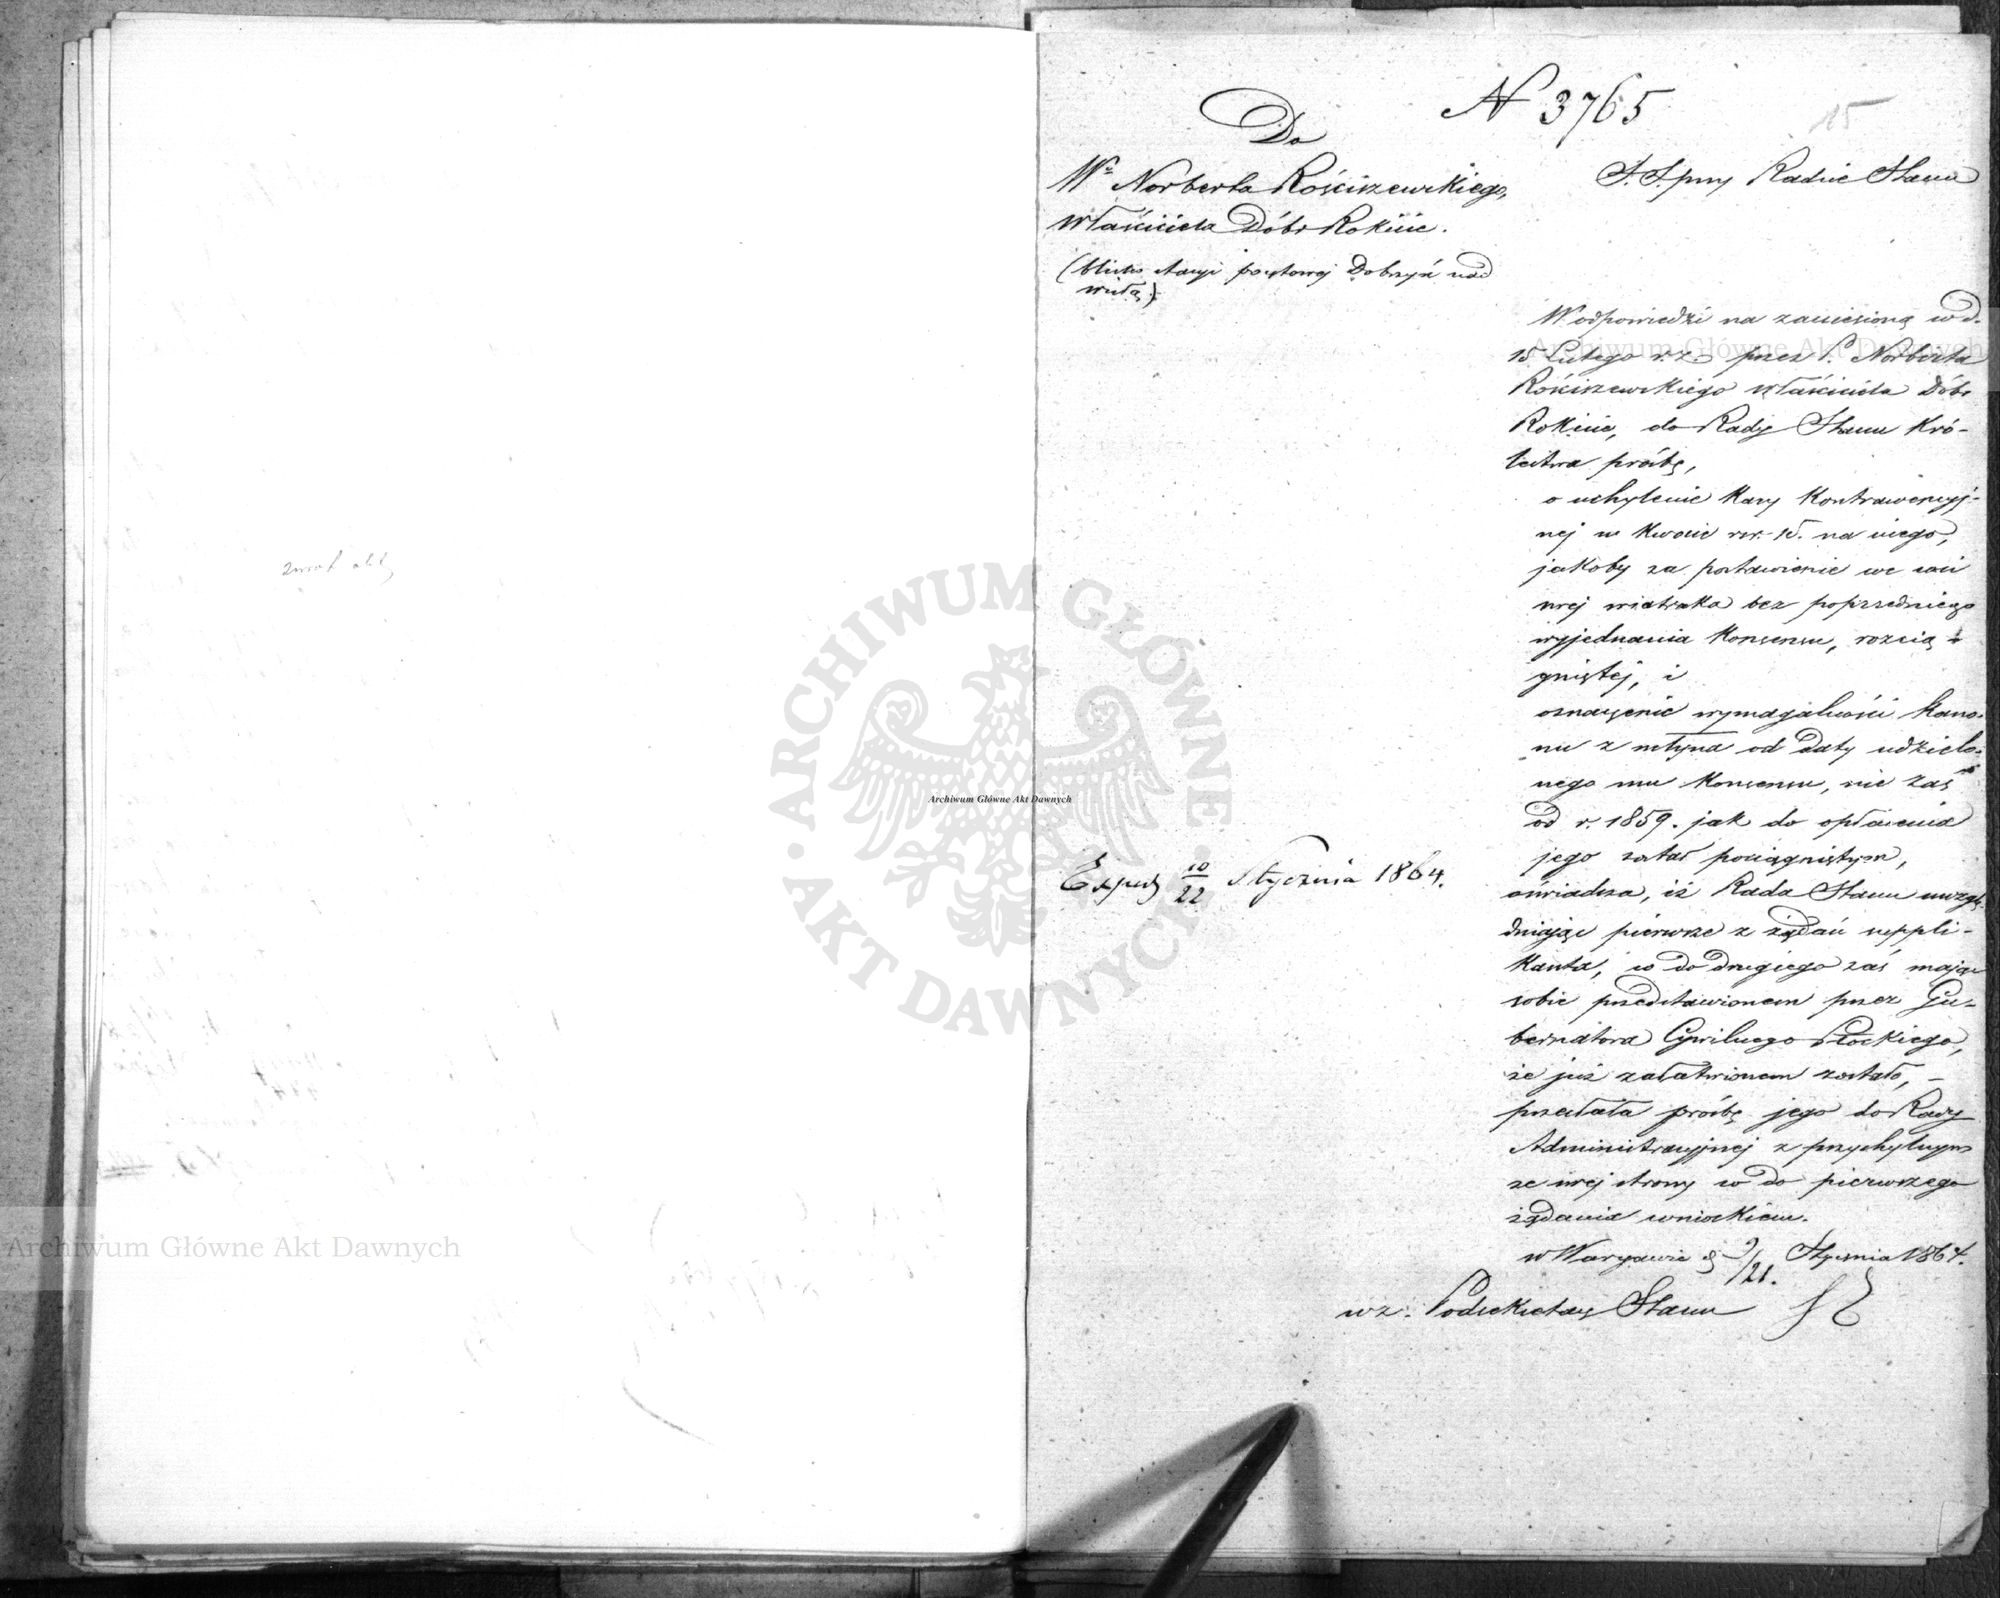 zwrot akt
N 3765
15
Do
Wº Norberta Rościszewskiego,
Właściciela Dóbr Rokicie.
(blisko stacyi pocztowej Dobrzyń nad
Wisłą)
S. S. przy Radzie Stanu
W odpowiedzi na zaniesioną w d.
15 Lutego r. z. przez P. Norberta
Rościszewskiego Właściciela Dóbr
Rokicie, do Rady Stanu Kró-
lestwa prośbę,
o uchylenie Kary Kontrawencyj-
nej w Kwocie rsr. 15. na niego,
jakoby za postawienie we wsi
swej wiatraka bez poprzedniego
wyjednania Konsensu, rozcią-
gniętej, i
oznaczenie wymagalności Kano-
nu z młyna od daty udzielo-
nego mu Konsensu, nie zaś
od r. 1859. jak do opłacenia
jego został pociągniętym,
oświadcza, iż Rada Stanu uwzglę-
dniając pierwsze z żądań suppli-
kanta, co do drugiego zaś mając
sobie przedstawionem przez Gu-
bernatora Cywilnego Płockiego,
że już załatwionem zostało, –
przesłała prośbę jego do Rady
Administracyjnej z przychylnym
ze swej strony co do pierwszego
żądania wnioskiem.
w Warszawie d. 9/21. Stycznia 1864.
wz. Podsekretarz Stanu
Exped 10/22 Stycznia 1864.
Archiwum Główne Akt Dawnych
Archiwum Główne Akt Dawnych
Archiwum Główne Akt Dawnych
ARCHIWUM GŁÓWNE · AKT DAWNYCH ·